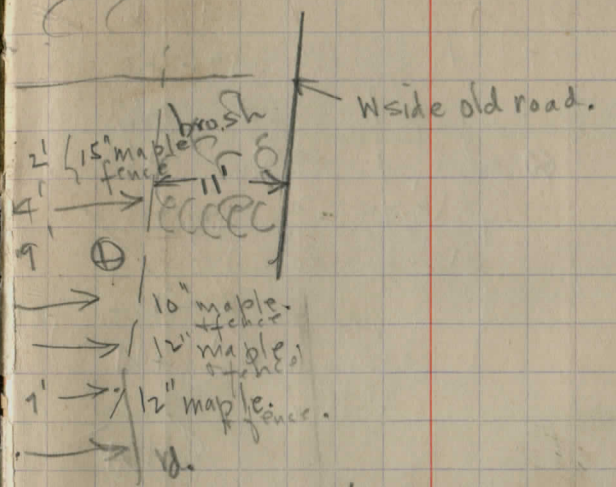 W side old road.
brush
2' 15" maple
fence
11'
4'
9'
10" maple.
+ fence
12" maple.
+ fence
9' 12" maple.
+ fence.
rd.